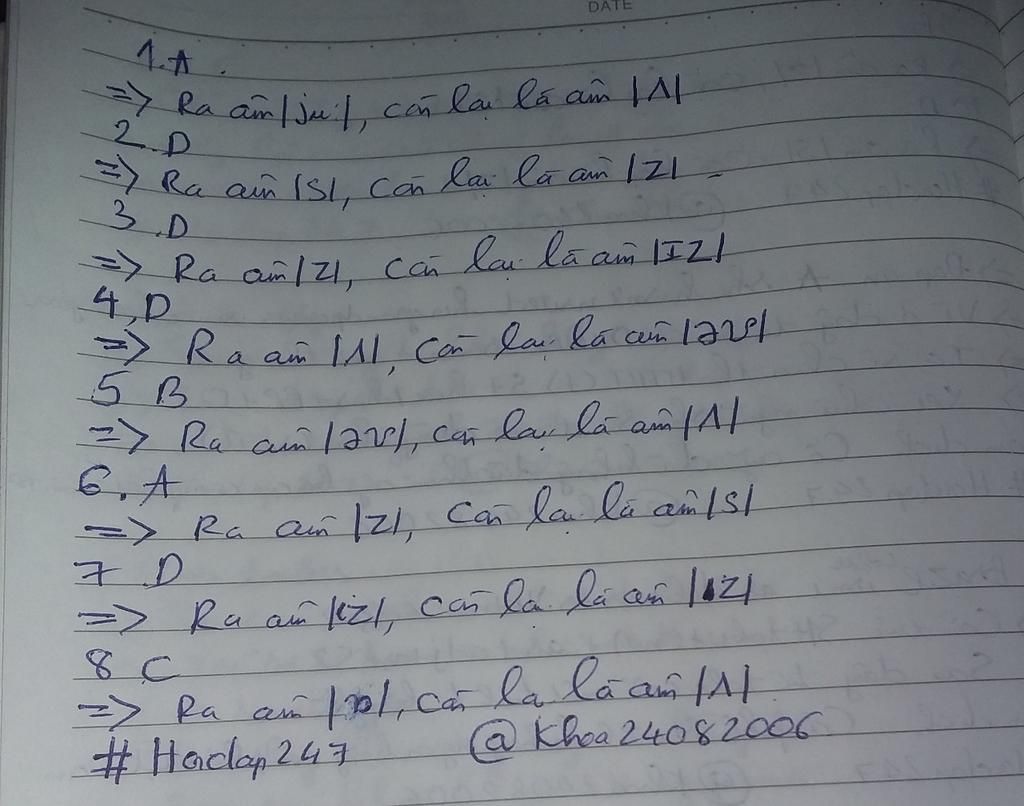 DATE
1.A.
=> Ra âm /ju:/, còn lại là âm /ʌ/
2.D
=> Ra âm /s/, còn lại là âm /z/
3.D
=> Ra âm /z/, còn lại là âm /ɪz/
4,D
=> Ra âm /ʌ/, còn lại là âm /əʊ/
5 B
=> Ra âm /əʊ/, còn lại là âm /ʌ/
6.A
=> Ra âm /z/, còn lại là âm /s/
7 D
=> Ra âm /iz/, còn lại là âm
8 C
=> Ra âm, còn lại là âm /ʌ/
# Hoidap247 @Khoa24082006